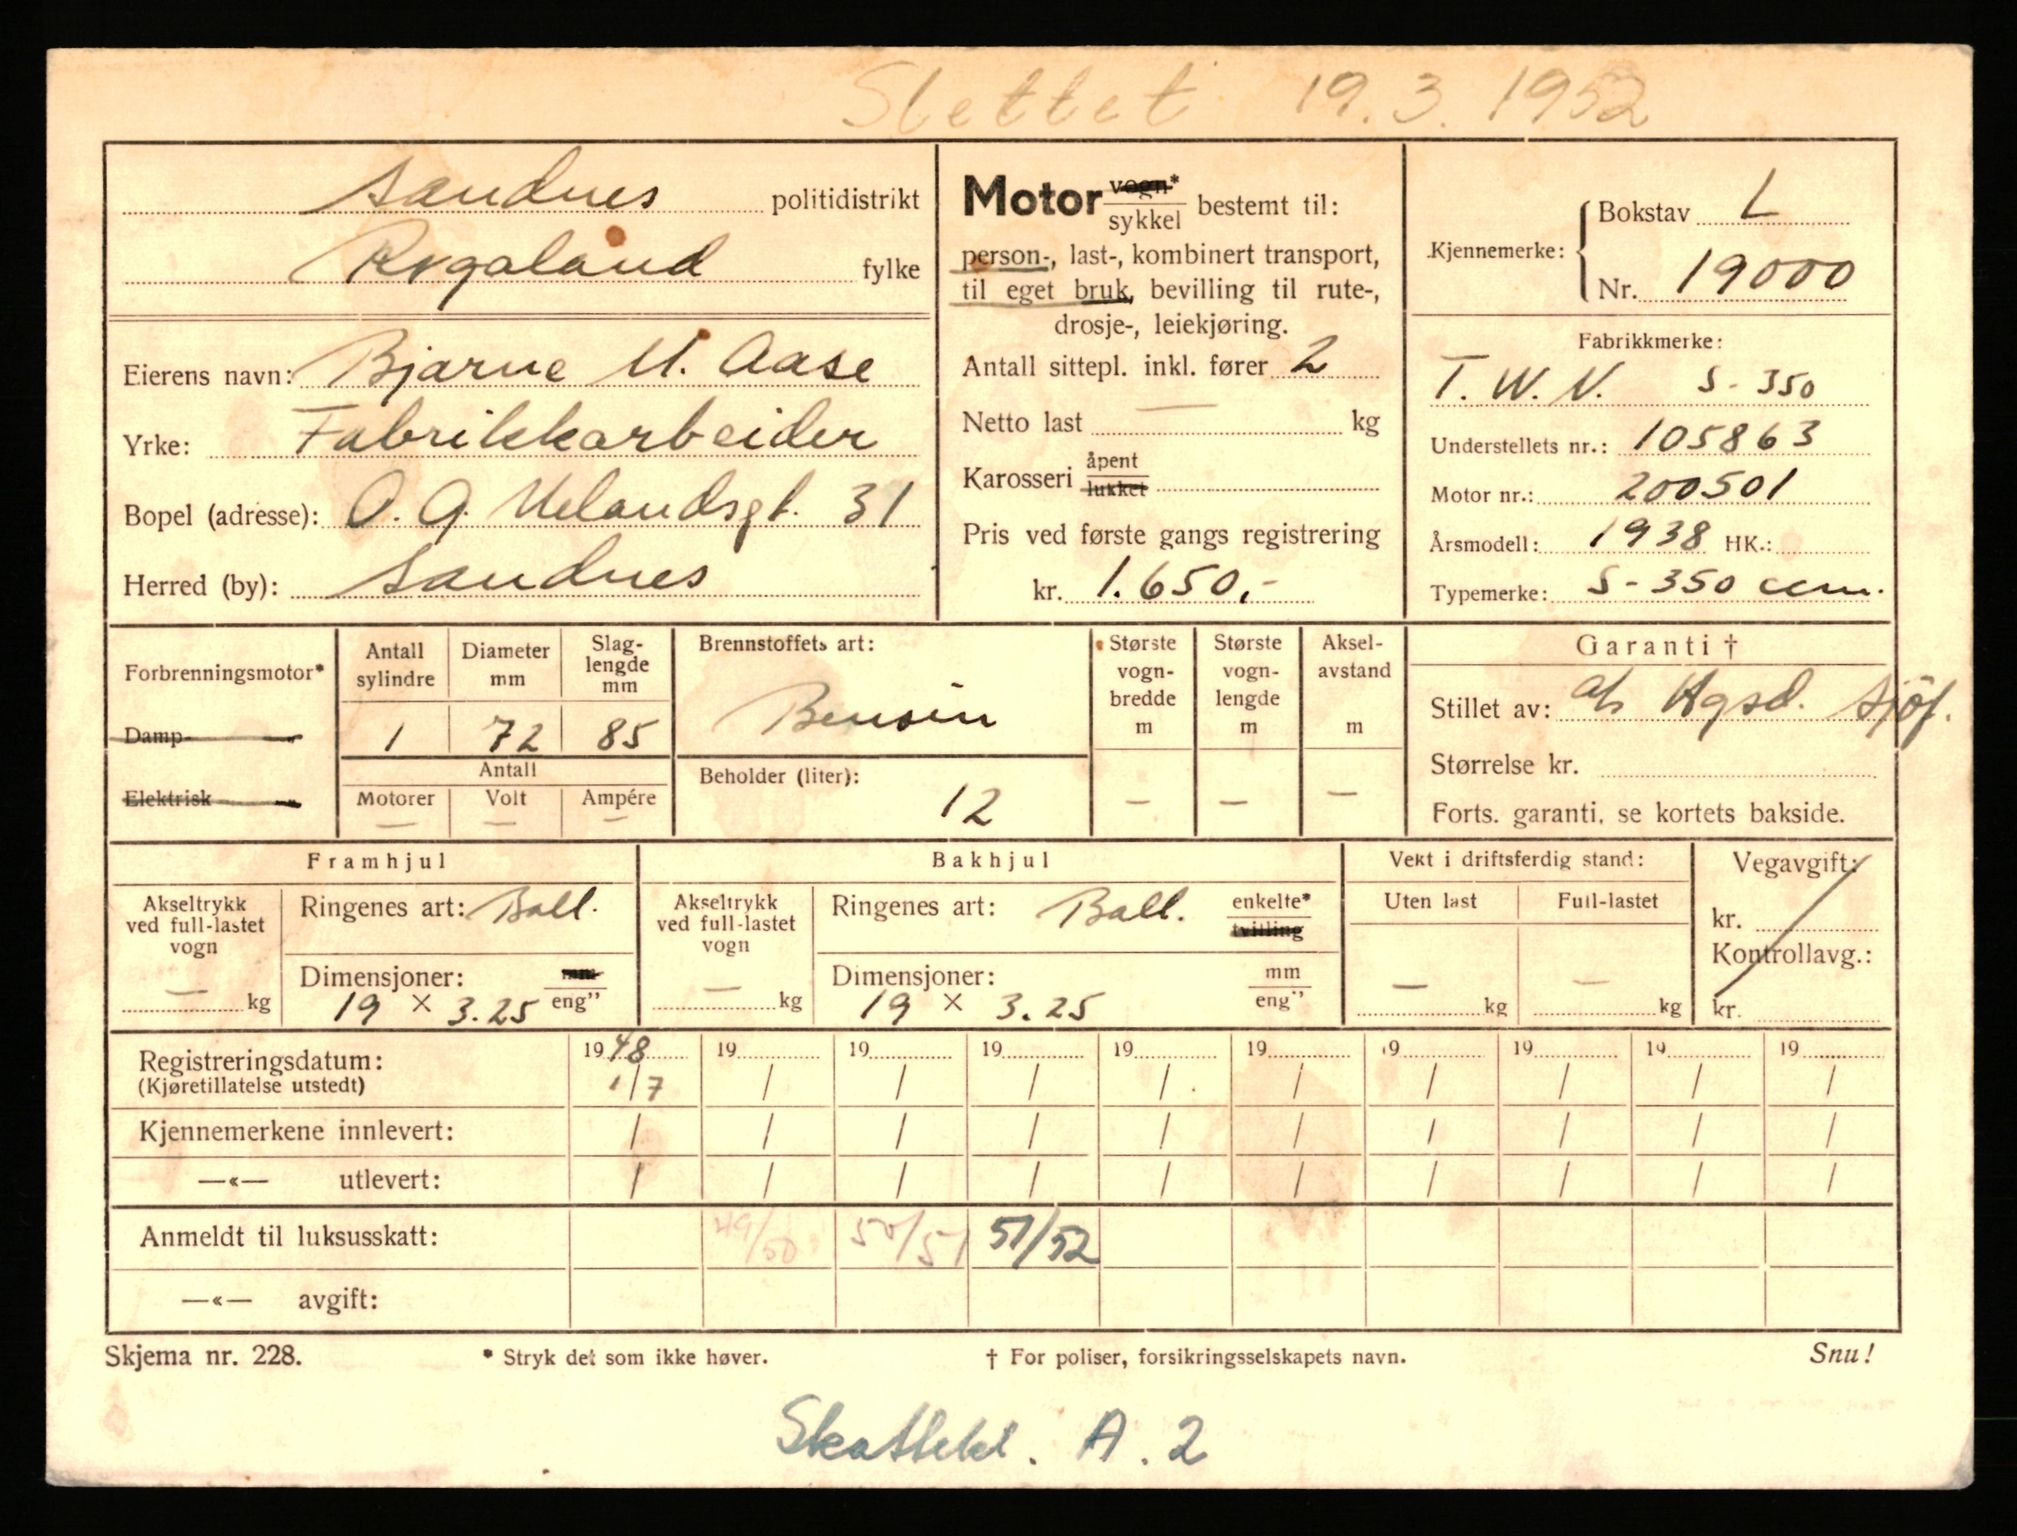 Slettet 19.3.1952
Sandnes politidistrikt
Rogaland fylke
Eierens navn: Bjarne M. Aase
Yrke: Fabrikkarbeider
Bopel (adresse): O. G. Uelandsgt. 31
Herred (by): Sandnes
Motor vogn* / sykkel bestemt til:
person-, last-, kombinert transport,
til eget bruk, bevilling til rute-,
drosje-, leiekjøring.
Antall sittepl. inkl. fører 2
Netto last — kg
Karosseri åpent / lukket
Pris ved første gangs registrering
kr. 1.650,-
Kjennemerke: Bokstav L
Nr. 19000
Fabrikkmerke:
T. W. N. S-350
Understellets nr.: 105863
Motor nr.: 200501
Årsmodell: 1938 HK.:
Typemerke: S-350 ccm.
Forbrenningsmotor*
Damp "
Elektrisk "
Antall sylindre 1
Diameter mm 72
Slag-lengde mm 85
Antall
Motorer — Volt — Ampére —
Brennstoffets art:
Bensin
Beholder (liter):
12
Største vogn-bredde m —
Største vogn-lengde m —
Aksel-avstand m —
Garanti †
Stillet av: Hgsd. Sjöf.
Størrelse kr.
Forts. garanti, se kortets bakside.
Framhjul
Akseltrykk ved full-lastet vogn — kg
Ringenes art: Ball.
Dimensjoner: mm / eng"
19 × 3.25
Bakhjul
Akseltrykk ved full-lastet vogn — kg
Ringenes art: Ball. enkelte* / tvilling
Dimensjoner: mm / eng"
19 × 3.25
Vekt i driftsferdig stand:
Uten last — kg
Full-lastet — kg
Vegavgift:
kr.
Kontrollavg.:
kr.
Registreringsdatum: 1948 19 19 19 19 19 19 19 19 19
(Kjøretillatelse utstedt) 1/7 / / / / / / / / /
Kjennemerkene innlevert: / / / / / / / / / /
—«— utlevert: / / / / / / / / / /
Anmeldt til luksusskatt: 49/50 50/51 51/52
—«— avgift:
Skjema nr. 228. * Stryk det som ikke høver. † For poliser, forsikringsselskapets navn. Snu!
A. 2